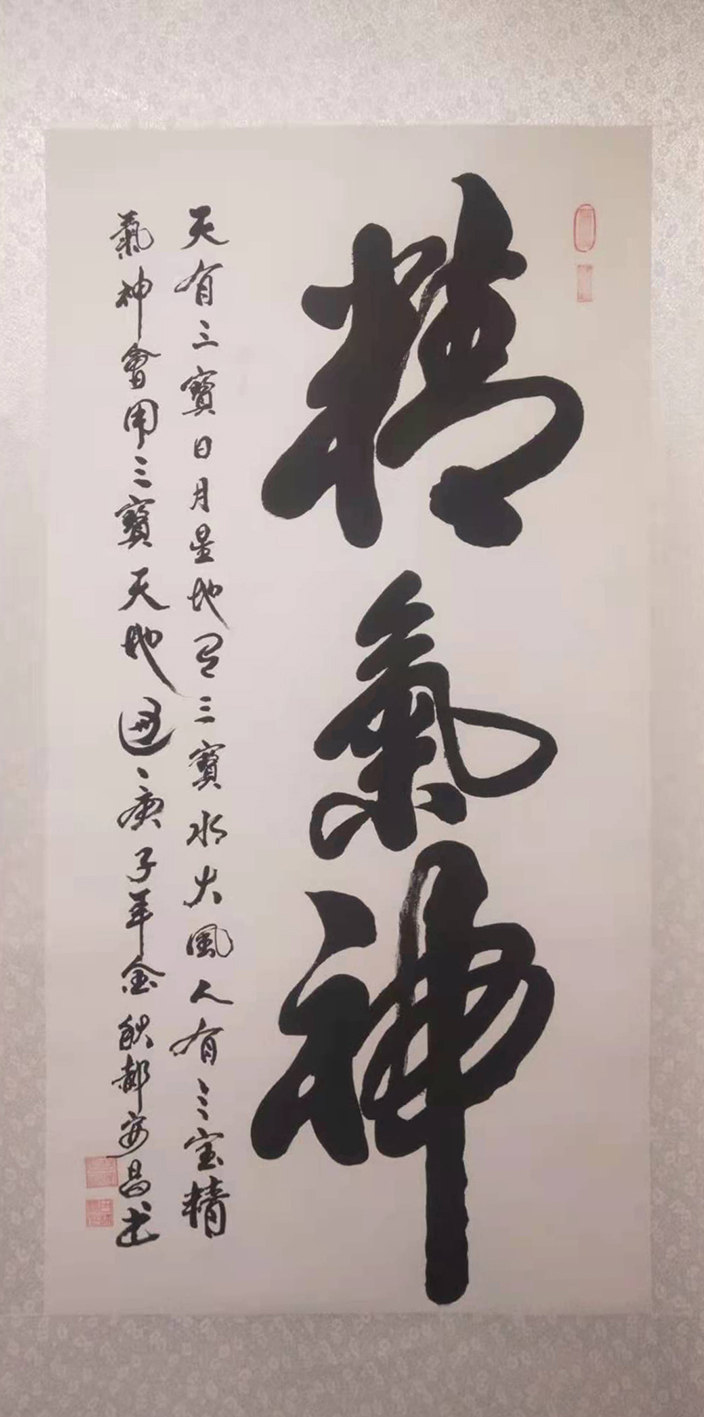 精氣神
天有三寳日月星地有三寳水火風人有三宝精
氣神會用三寳天地通庚子年金秋郝安昌书